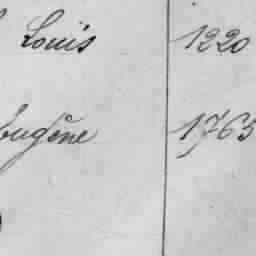 Louis 1220
Eugène 1763